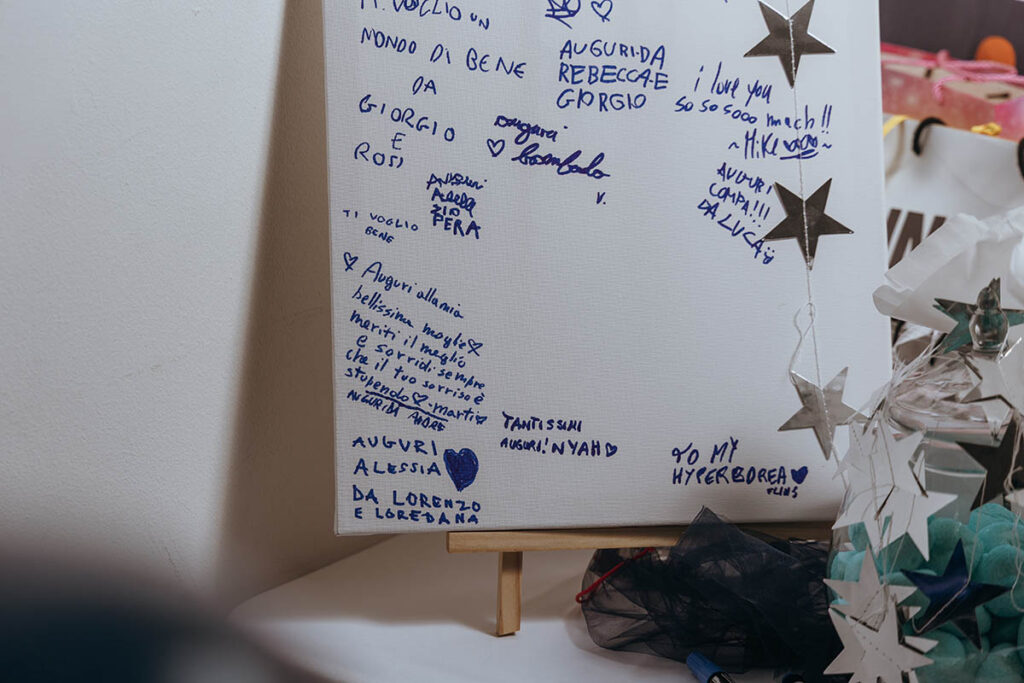 TI VOGLIO UN
MONDO DI BENE
DA
GIORGIO
E
ROSI
AUGURI DA
REBECCA E
GIORGIO
i love you
so so sooo mach!!
~MiKe
auguri
V.
AUGURI
COMPA!!!
DA LUCA
ZIO
PERA
TI VOGLIO
BENE
Auguri alla mia
bellissima moglie
meriti il meglio
e sorridi sempre
che il tuo sorriso è
stupendo -marti
AUGURI DA
AUGURI
ALESSIA
DA LORENZO
E LOREDANA
TANTISSIMI
AUGURI! NYAH
TO MY
HYPERBOREA